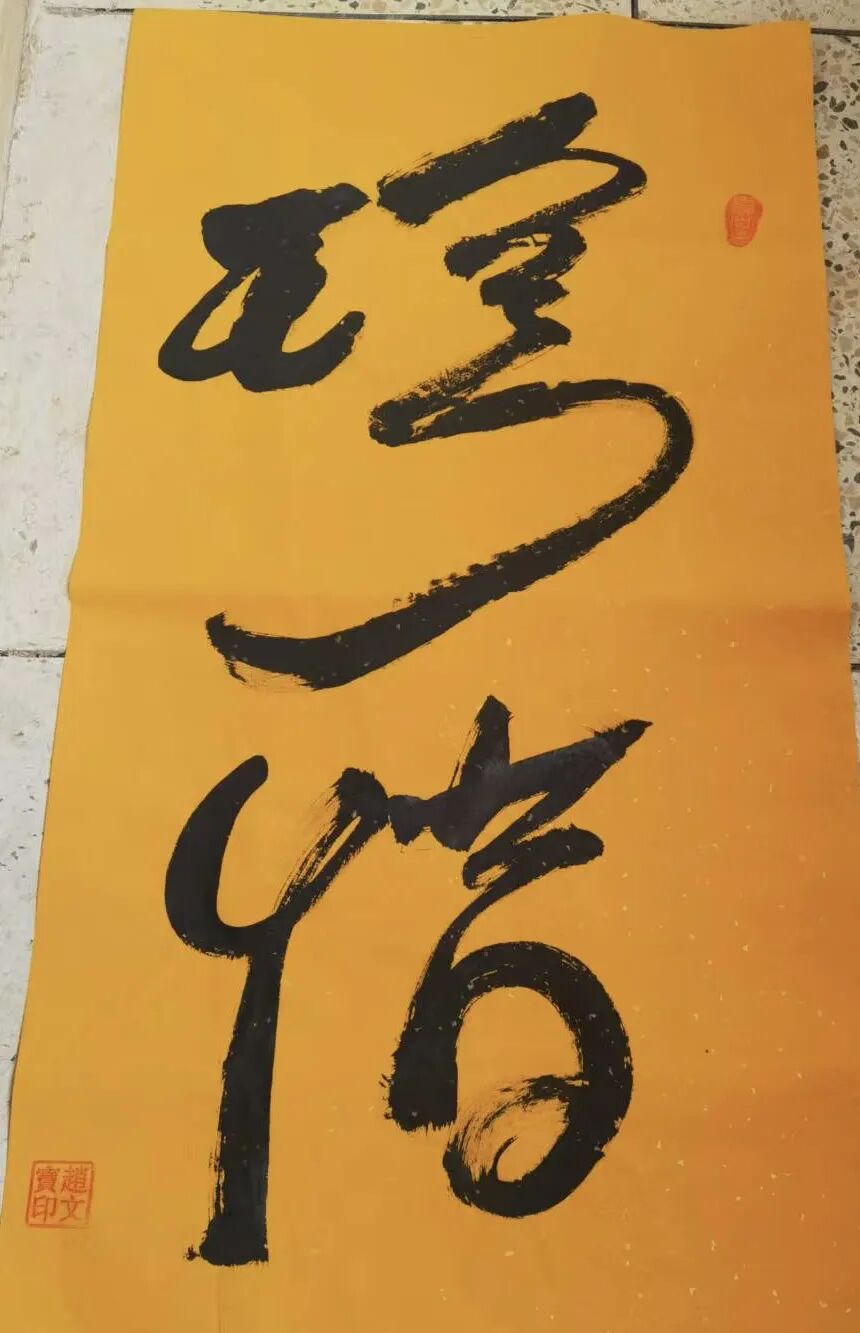 珍惜
趙文寶印